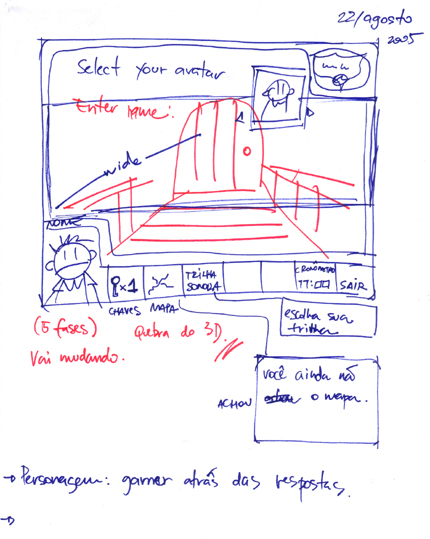 22/agosto
2005
Select your avatar
Enter name:
wide
NOME
x1
TRILHA
SONORA
CRONÔMETRO
17:00
SAIR
CHAVES
MAPA
escolha sua
trilha
(5 fases)
Vai mudando.
Quebra do 3D.
você ainda não
o mapa.
ACTION
→ Personagem: gamer atrás das respostas.
→